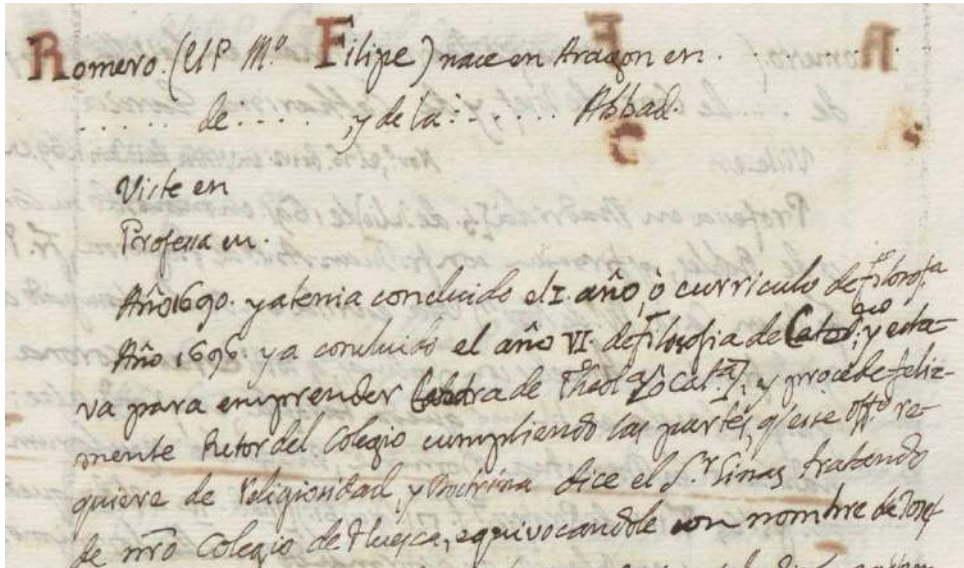 Romero. (El P. Mº. Filipe) nace en Aragon en.
. . . . . . de . . . . . , y de la . . . . . . Abbad.
Viste en
Professa en.
Año 1690. ya tenia concluido el I. año, ò curriculo de Filosofia
Año 1696. ya concluido el año VI. de Filosofia de Catedco. y esta-
va para emprender Catedra de Theola. y procede feliz-
mente Retor del Colegio cumpliendo las partes, q̃ esse offo. re-
quiere de Religiosidad, y Doctrina dice el Sr. Sinas tratando
de nrõ Colegio de Huesca, equivocandole con nombre de Josef